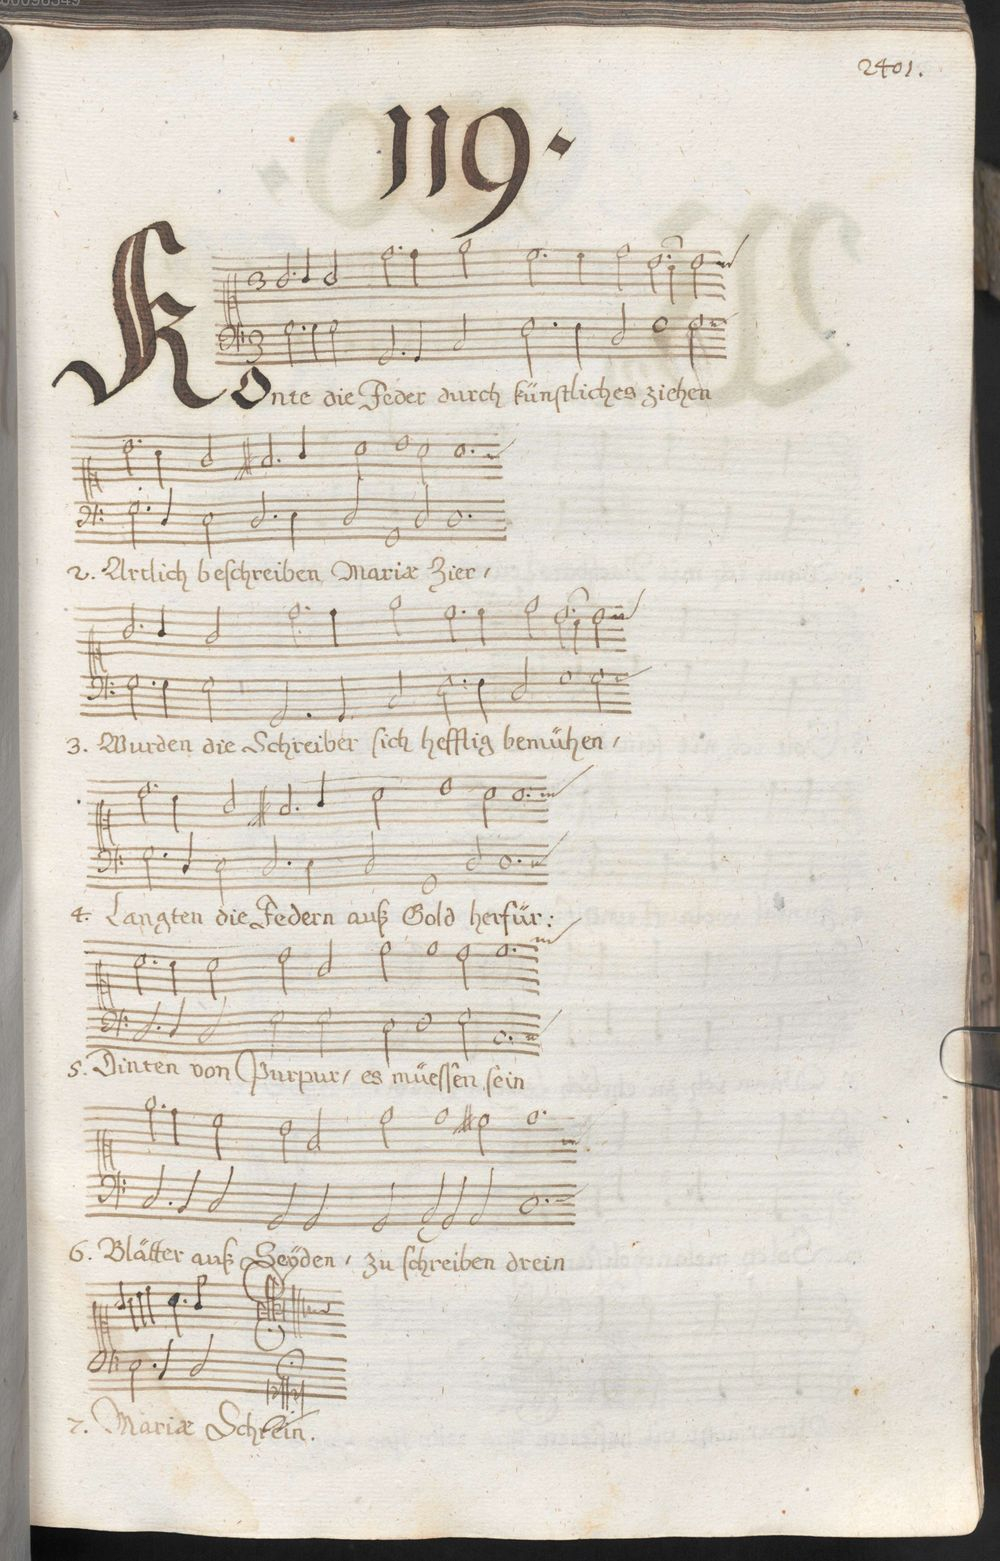 2401.
119.
KOnte die Feder durch künstliches ziehen
2. Artlich beschreiben Mariæ Zier,
3. Wurden die Schreiber sich hefftig bemühen,
4. Langten die Federn auß Gold herfür:
5. Dinten von Purpur, es müessen sein
6. Blätter auß Seÿden, zu schreiben drein
7. Mariæ Schrein.